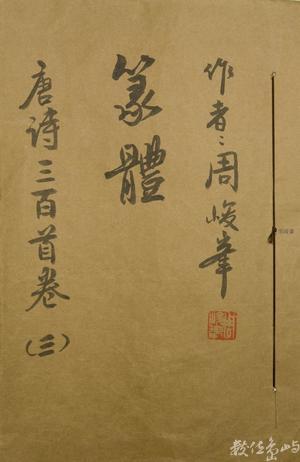 作者：周峻峯
篆體
唐詩三百首卷（三）
數位島嶼